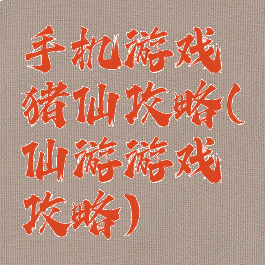 手机游戏
猪仙攻略(
仙游游戏
攻略)